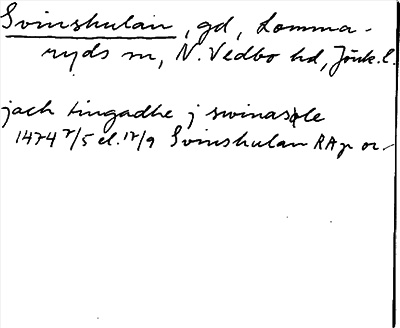 Svinshulan, gd, Lomma-
ryds sn, N. Vedbo hd, Jönk. l.
jach tingadhe j swinas le
1474 7/5 el. 17/9 Svinshulan RAp or.